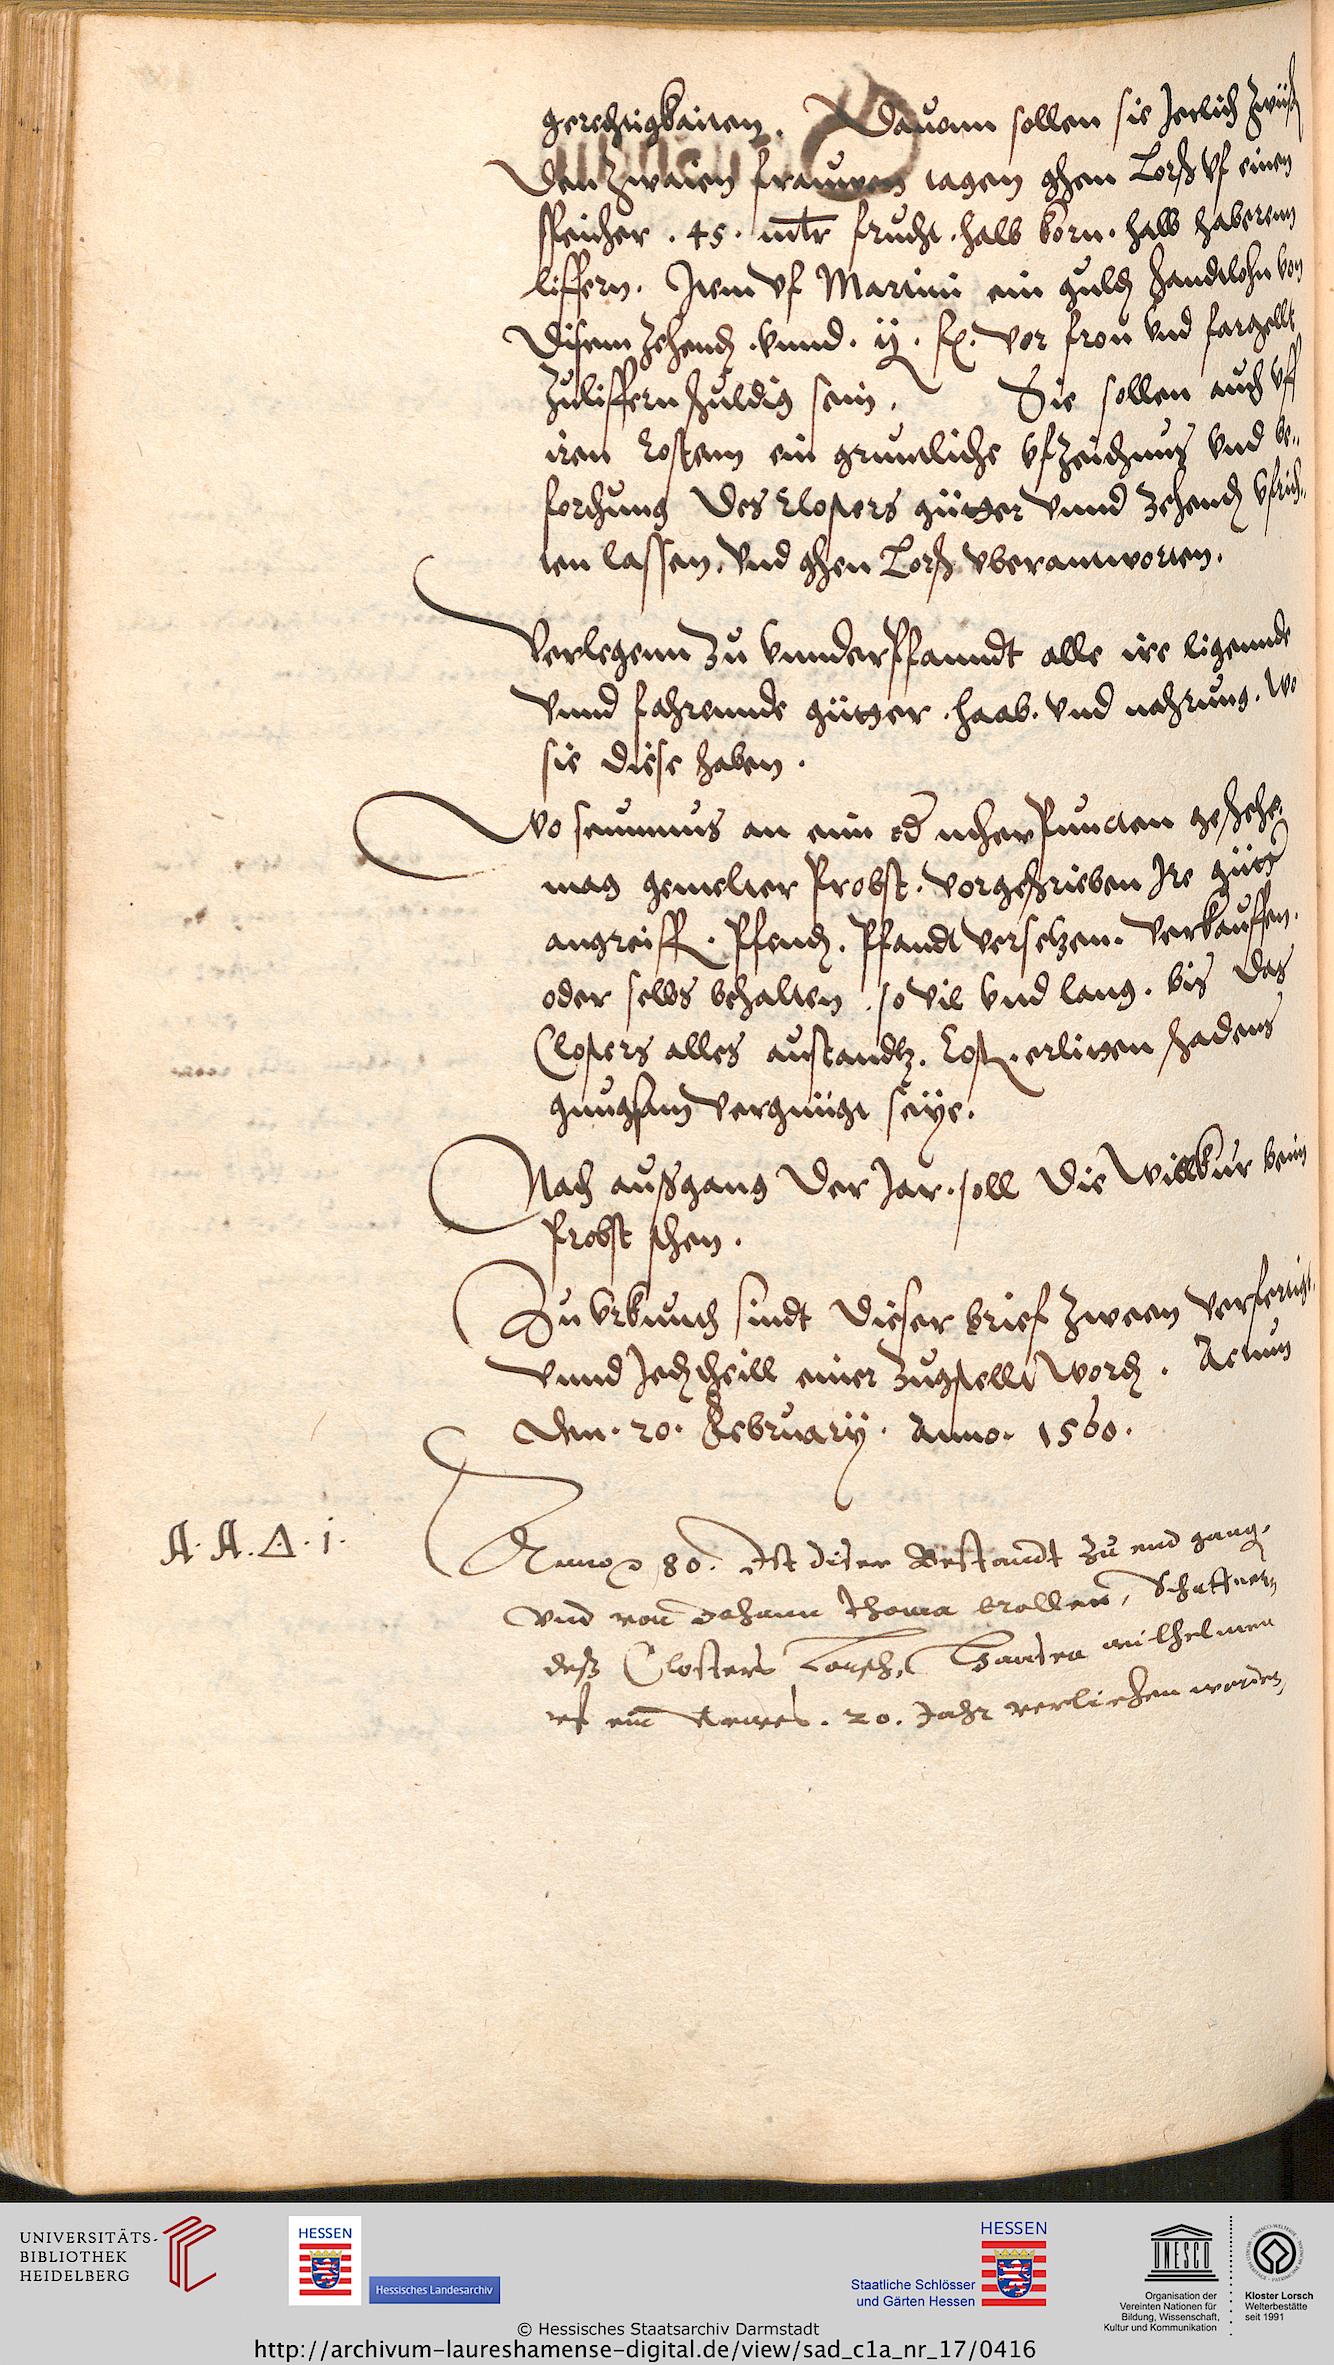 gerechtigkaiten. Dauonn sollen sie Jerlich zwüsch
den zwaien frauwen tagen ghen Lorsch vf einen
speicher . 45 . mltr frucht . halb korn . halb haberenn
liffern. Item vf Martini ein guld handtlohn von
disem zehend . vnnd . ij . vor fron vnd fargellt
zuliffern schuldig sein . Sie sollen auch vff
iren kostenn ein gruntliche vfzeichnus vnd be-
forchung des Closters gütter vnnd zehend vfrich-
ten lassen. vnd ghen Lorsch vberantworten.
Verlegenn zu vnnderpfanndt alle ire ligennde
vnnd fahrennde gütter . haab . vnd nahrung . wo
sie diese haben .
Wo seumnus an eim od mher Puncten geschehe
mag gemelter Probst . vorgeschrieben Ire gütt
angreiff . Pfend . Pfandt versetzen . verkauffen .
oder selbs behalten . so vil vnd lang . bis das
Closters alles austandts . kost . erlitten schadens
gnugsam vergnügt seiye .
Nach aussgang der Jar . soll die Willkur beim
Probst sthen .
Zu vrkunth sindt dieser brief zween verfertigt
vnnd Jed theill einer zugstellt word . Actum
den . 20 . February . Anno . 1560 .
A . A . Δ . i .
Anno 80. Ist diser Bestandt zu end gang.
vnd von Johann Thoma Schaffnern
dess Closters Lorsch, Hansen wilhelmen
vf ein Newes . 20 . Jahr verliehen worden,
UNIVERSITÄTS-
BIBLIOTHEK
HEIDELBERG
HESSEN
Hessisches Landesarchiv
HESSEN
Staatliche Schlösser
und Gärten Hessen
UNESCO
Organisation der
Vereinten Nationen für
Bildung, Wissenschaft,
Kultur und Kommunikation
Kloster Lorsch
Welterbestätte
seit 1991
© Hessisches Staatsarchiv Darmstadt
http://archivum-laureshamense-digital.de/view/sad_c1a_nr_17/0416